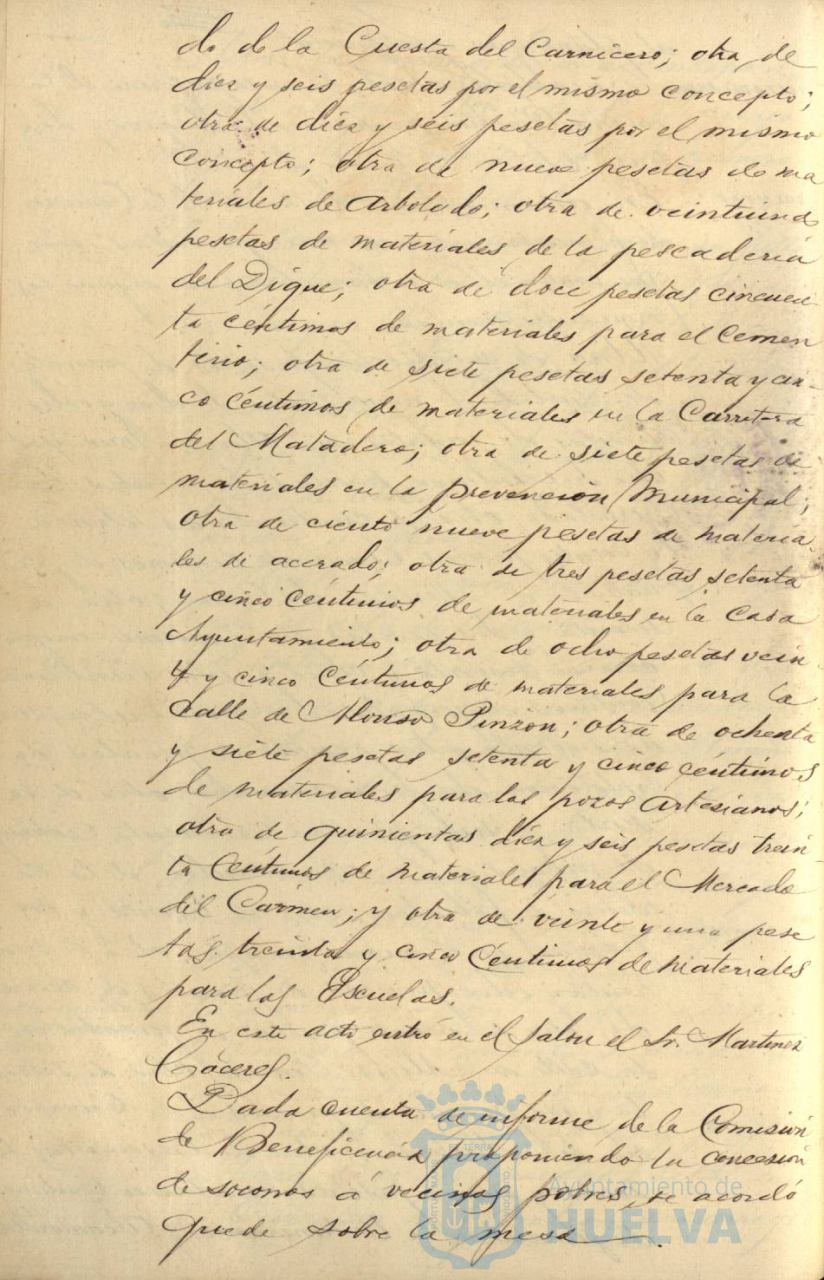 do de la Cuesta del Carnicero; otra de
diez y seis pesetas por el mismo concepto;
otra de diez y seis pesetas por el mismo
concepto; otra de nueve pesetas de ma
teriales de Arbolado; otra de veintiuna
pesetas de materiales de la pescaderia
del Dique; otra de doce pesetas cincuen
ta céntimos de materiales para el Cemen
terio; otra de siete pesetas setenta y cin-
co céntimos de materiales en la Carretera
del Matadero; otra de siete pesetas de
materiales en la prevención Municipal;
otra de ciento nueve pesetas de materia
les de acerado; otra de tres pesetas setenta
y cinco céntimos de materiales en la Casa
Ayuntamiento; otra de ocho pesetas vein
te y cinco céntimos de materiales para la
Calle de Alonso Pinzón; otra de ochenta
y siete pesetas setenta y cinco céntimos
de materiales para los pozos Artesianos;
otra de quinientas diez y seis pesetas trein
ta céntimos de materiales para el Mercado
del Carmen; y otra de veinte y una pese
tas treinta y cinco Céntimos de materiales
para las Escuelas.
En este acto entró en el Salon el Sr. Martinez
Cáceres.
Dada cuenta de informe de la Comisión
de Beneficencia proponiendo la concesión
de socorros á vecinos pobres, se acordó
quede sobre la mesa.
Ayuntamiento de
HUELVA